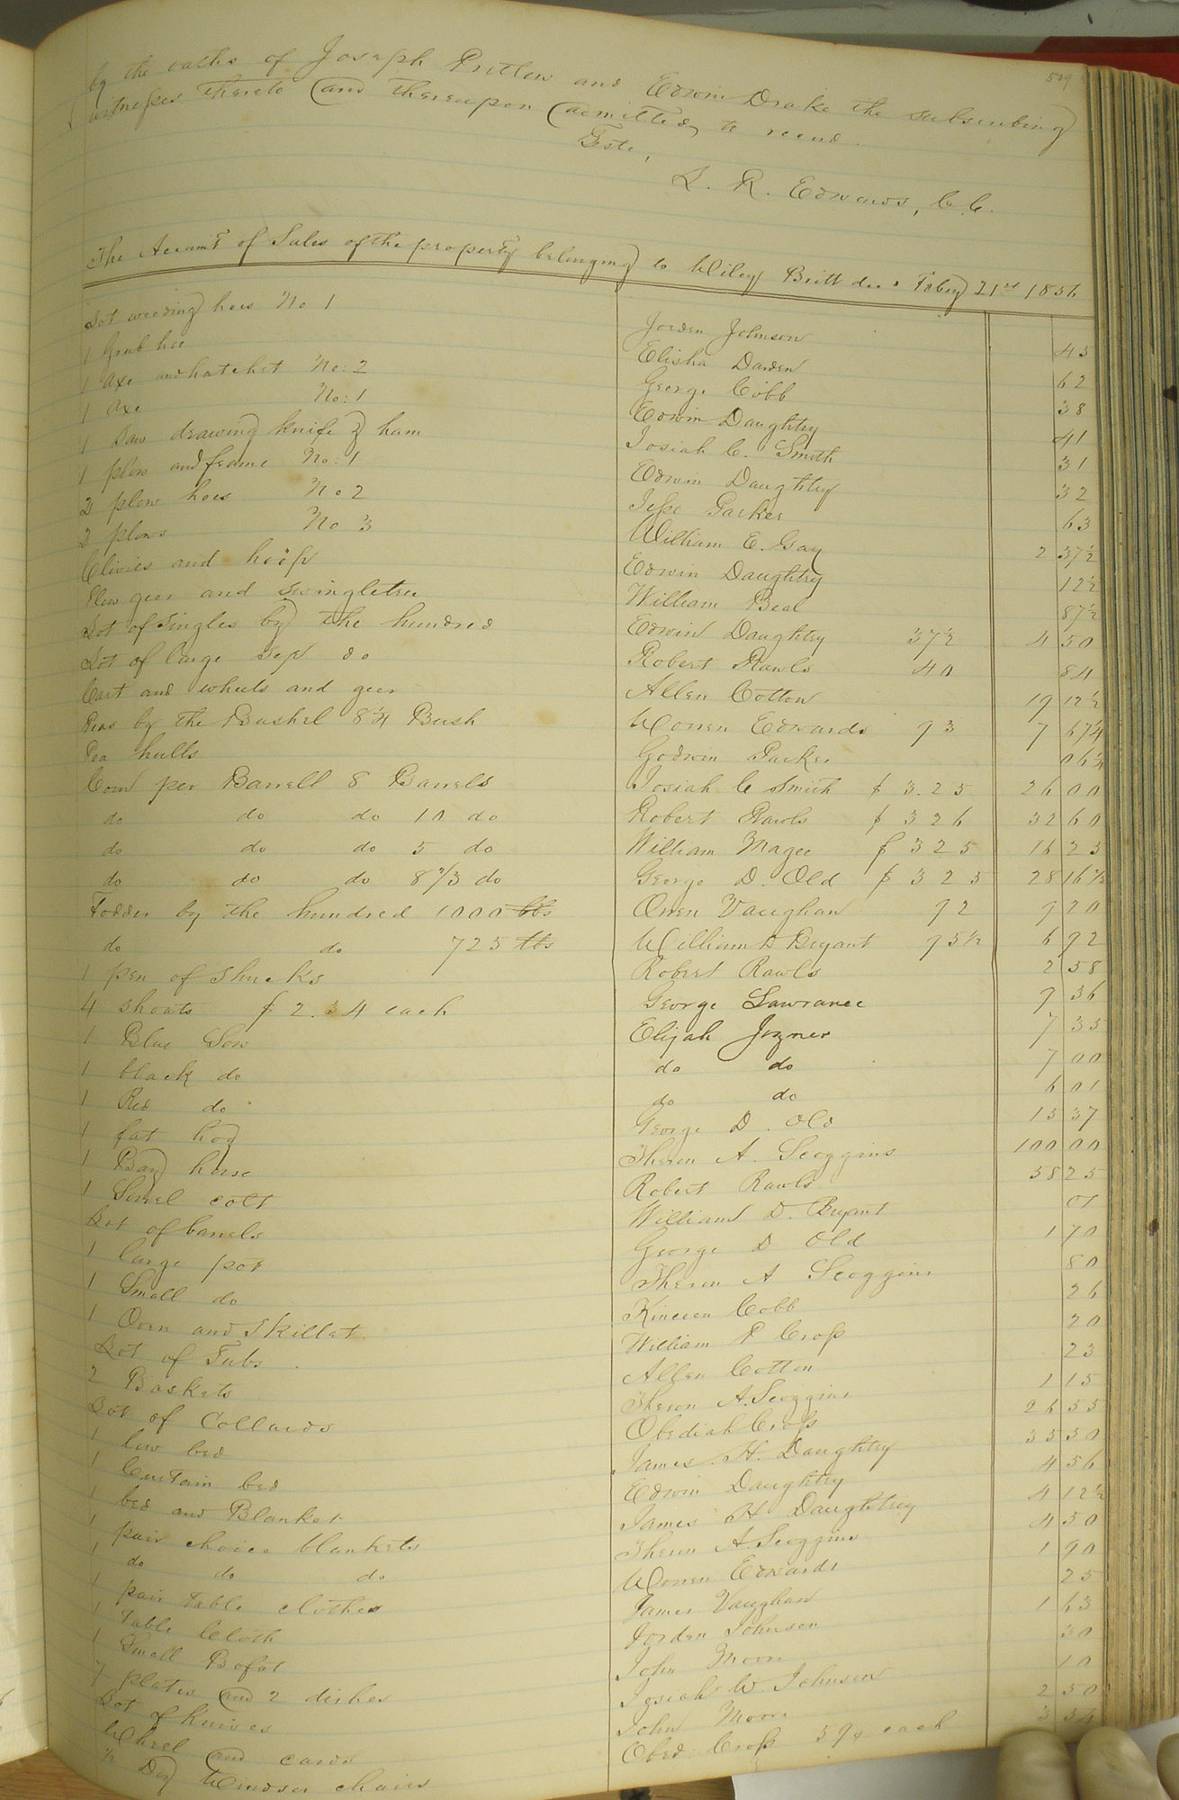 529
by the oaths of Joseph Pretlow and Edwin Drake the subscribing
witnesses thereto and thereupon admitted to record.
Teste,
L. R. Edwards, C.C.
The Account of Sales of the property belonging to Wiley Britt dec. Feby 21st 1856
Lot weeding hoes No 1 Jorden Johnson 45
1 Grub hoe Elisha Darden 62
1 Axe and hatchet No: 2 George Cobb 38
1 Axe No: 1 Edwin Daughtry 41
1 Saw drawing knife & ham Josiah C. Smith 31
1 plow and frame No: 1 Edwin Daughtry 32
2 plow hoes No 2 Jesse Parker 63
2 plows No 3 William E. Gay 2 37½
Clivies and hoops Edwin Daughtry 12½
Plow geer and swingletree William Beal 87½
Lot of Singles by the hundred Edwin Daughtry 37½ 4 50
Lot of large do Robert Rawls 40 84
Cart and wheels and geer Allen Cotton 19 12½
Peas by the Bushel 8¼ Bush Women Edwards 93 7 67¼
Pea hulls Godwin Parker 06¼
Corn per Barrell 8 Barrels Josiah C Smith $ 3.25 26 00
do do do 10 do Robert Rawls $ 3 26 32 60
do do do 5 do William Magee $ 3 25 16 25
do do do 8 2/3 do George D. Old $ 3 25 28 16½
Fodder by the hundred 1000 lbs Owen Vaughan 92 9 20
do do 725 lbs William D Bryant 95½ 6 92
1 pen of Shucks Robert Rawls 2 58
4 shoats $ 2.34 each George Lawrance 9 36
1 Blue Sow Elijah Joyner 7 35
1 black do do do 7 00
1 Red do do do 6 01
1 fat hog George D. Old 13 37
1 Bay horse Theron A. Scoggins 100 00
1 Sorrel colt Robert Rawls 58 25
Lot of barrels William D. Bryant 01
1 large pot George D Old 1 70
1 Small do Theron A Scoggins 80
1 Oven and Skillet Kinchen Cobb 26
Lot of Tubs William P Cross 20
2 Baskets Allen Cotton 23
Lot of Collards Theron A. Scoggins 1 15
1 low bed Obediah Cross 26 55
1 Curtain bed James H. Daughtry 35 50
1 bed and Blanket Edwin Daughtry 4 56
1 pair choice blankets James H Daughtrey 4 12½
1 do do do Theron A. Scoggins 4 50
1 pair table clothes Women Edwards 1 90
1 Table Cloth James Vaughan 25
1 Small Bofat Jorden Johnson 1 63
7 plates and 2 dishes John Moore 30
Lot of knives Josiah W. Johnson 10
Wheel and cards John Moore 2 50
½ Doz Windsor chairs Obed. Cross 59¢ each 3 54